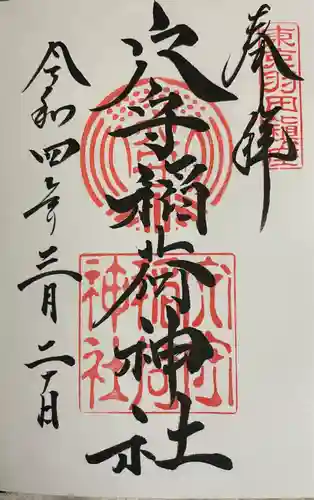 奉拝
東京羽田鎮座
穴守稲荷神社
穴守
稲荷
神社
令和四年三月二十日